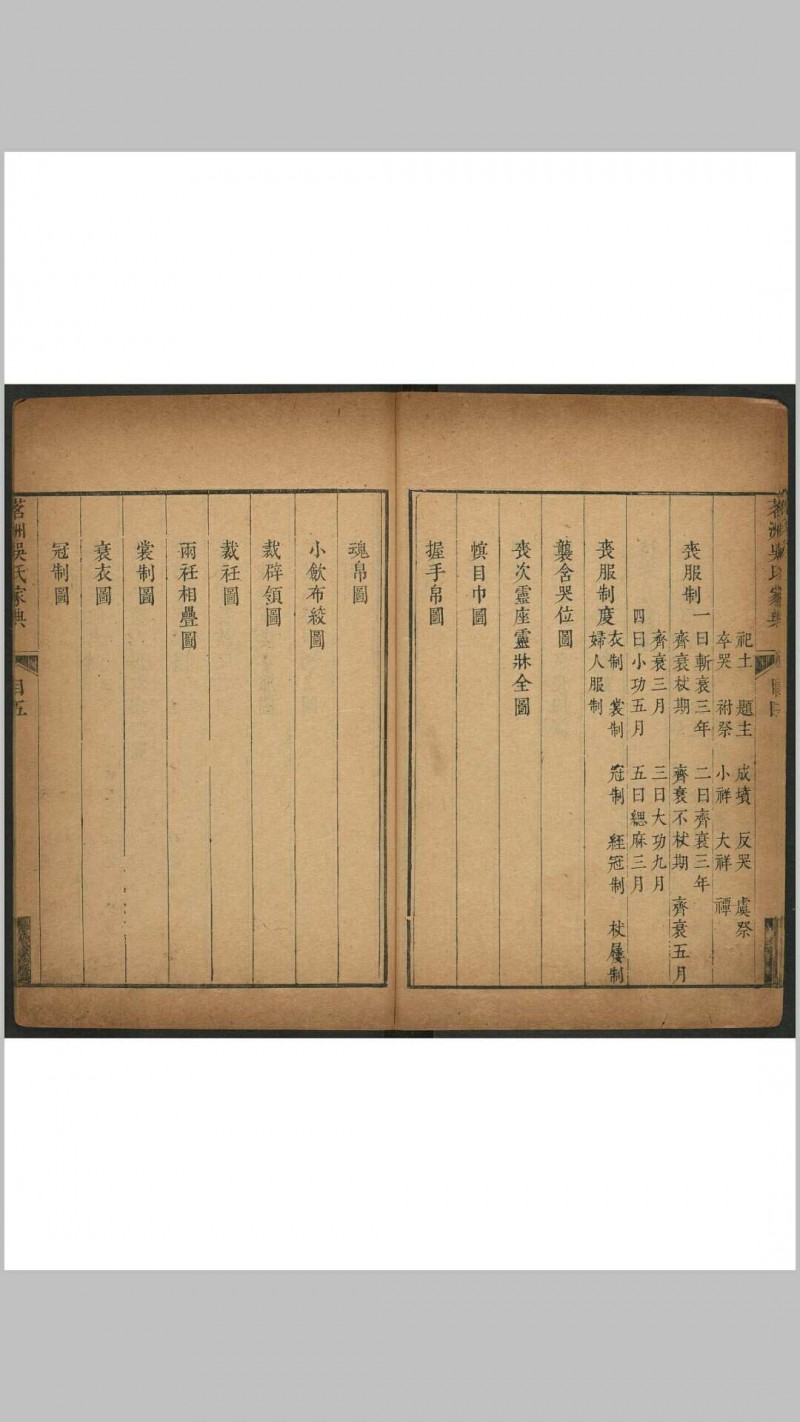 茗洲吳氏家典
祀土 題主 成墳 反哭 虞祭
卒哭 祔祭 小祥 大祥 禫
喪服制
一曰斬衰三年 二曰齊衰三年
齊衰杖期 齊衰不杖期 齊衰五月
齊衰三月 三曰大功九月
四曰小功五月 五曰緦麻三月
喪服制度
衣制 裳制 冠制 絰冠制 杖屨制
婦人服制
襲含哭位圖
喪次靈座靈牀全圖
幎目巾圖
握手帛圖
魂帛圖
小斂布絞圖
裁辟領圖
裁衽圖
兩衽相疊圖
裳制圖
衰衣圖
冠制圖
茗洲吳氏家典
目五